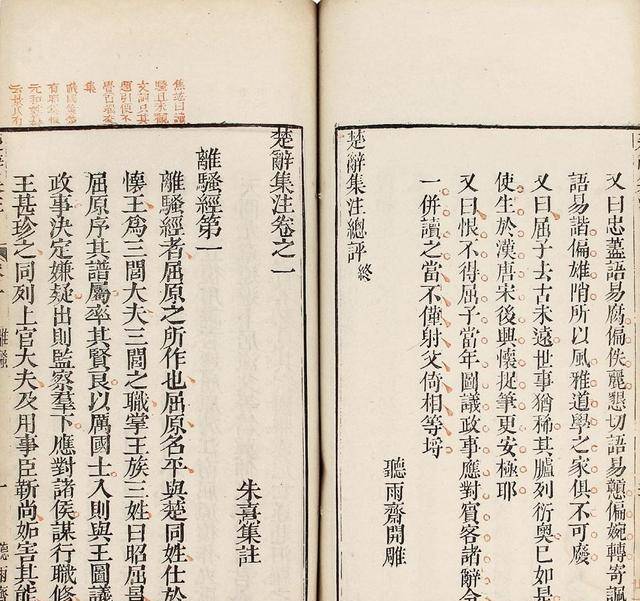 又曰忠藎語易腐偏佚麗懇切語易戇偏婉轉寄諷
語易諧偏雄陗所以風雅道學之家俱不可廢
又曰屈子去古未遠世事猶稀其臚列衍奧已如是
使生於漢唐宋後興懷捉筆更安極耶
又曰恨不得屈子當年圖議政事應對賓客諸辭令
一併讀之當不僅射父倚相等埒
聽雨齋開雕
楚辭集注總評終
楚辭集注卷之一
朱熹集註
離騷經第一
離騷經者屈原之所作也屈原名平與楚同姓仕於
懷王為三閭大夫三閭之職掌王族三姓曰昭屈景
屈原序其譜屬率其賢良以厲國士入則與王圖議
政事決定嫌疑出則監察羣下應對諸侯謀行職修
王甚珍之同列上官大夫及用事臣靳尚妬害其能
離騷
一
聽雨齋